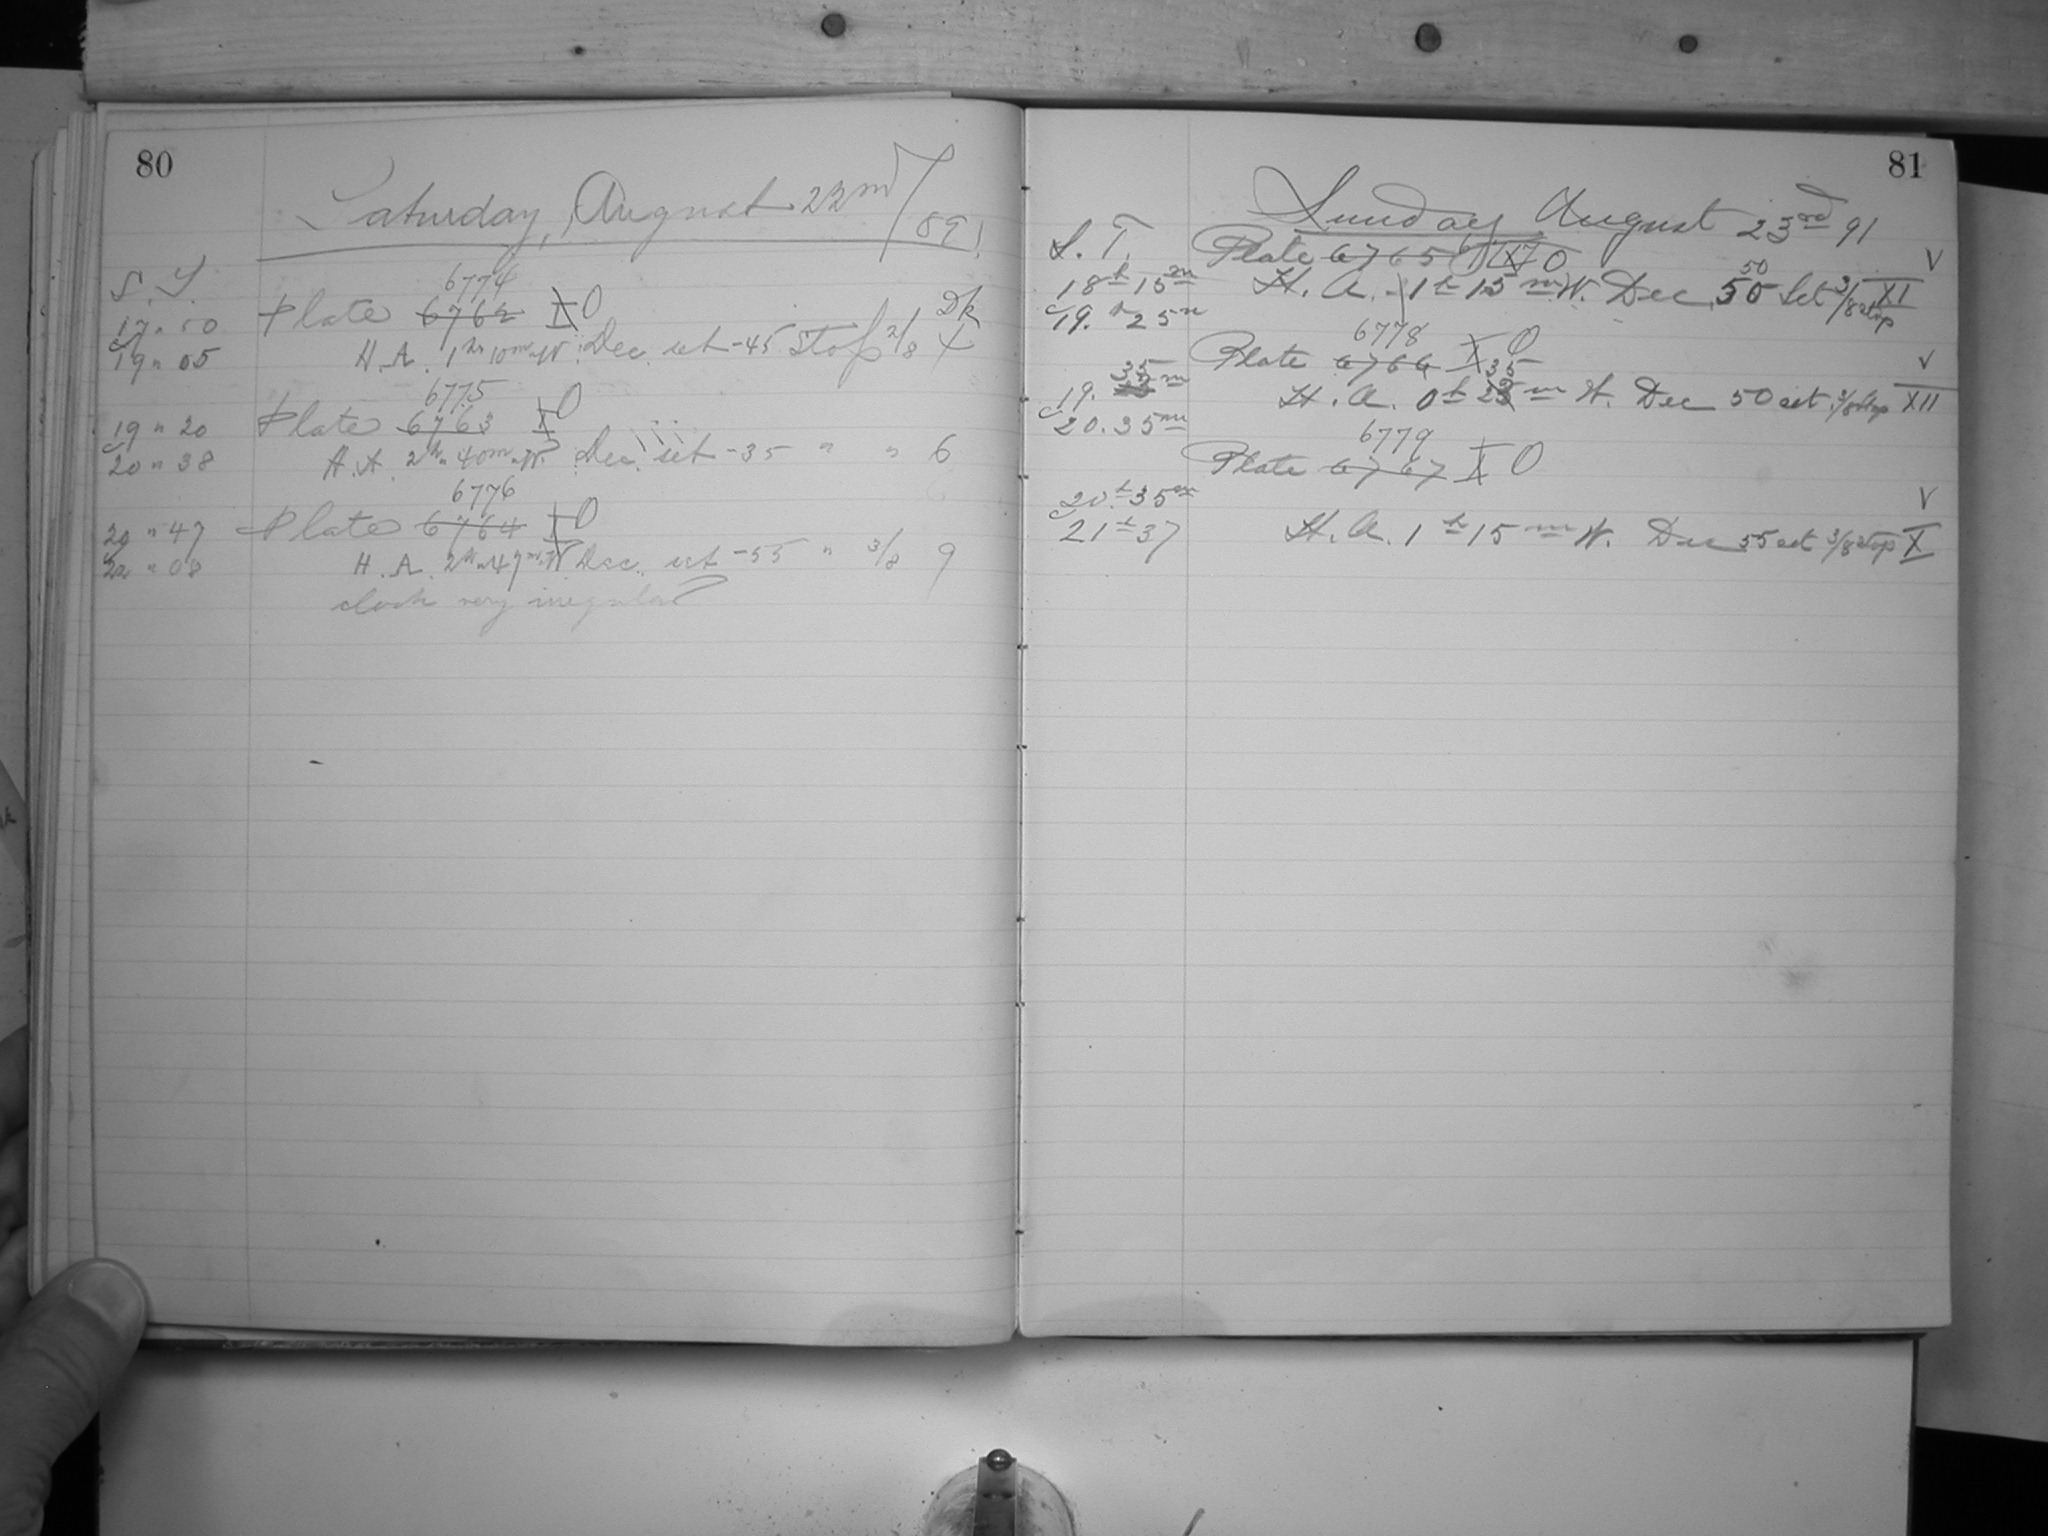 80
Saturday, August 22nd/891
S. T.
6774
Plate 6762 X O Dk
17 " 50
H. A. 1h 10m W. Dec. set -45 Stop 2/8 X
19 " 05
6775
Plate 6763 X O
19 " 20
H. A. 2h 40m W. Dec. set -35 " " 6
20 " 38
6776
Plate 6764 X O
20 " 47
H. A. 2h 47m W Dec. set -55 " 3/8 9
22 " 08
clock very irregular
81
Sunday August 23rd 91
S. T.
Plate 6765 6777 X O V
18h 15m
H. A. 1h 15m W. Dec 50 Set 3/8 stop XI
50
19. h 25m
6778
Plate 6766 X O V
19. 35m
H. A. 0h 35m W. Dec 50 set 3/8 stop XII
20. 35m
6779
Plate 6767 X O
20.h 35m V
21h 37
H. A. 1h 15m W. Dec 55 set 3/8 stop X